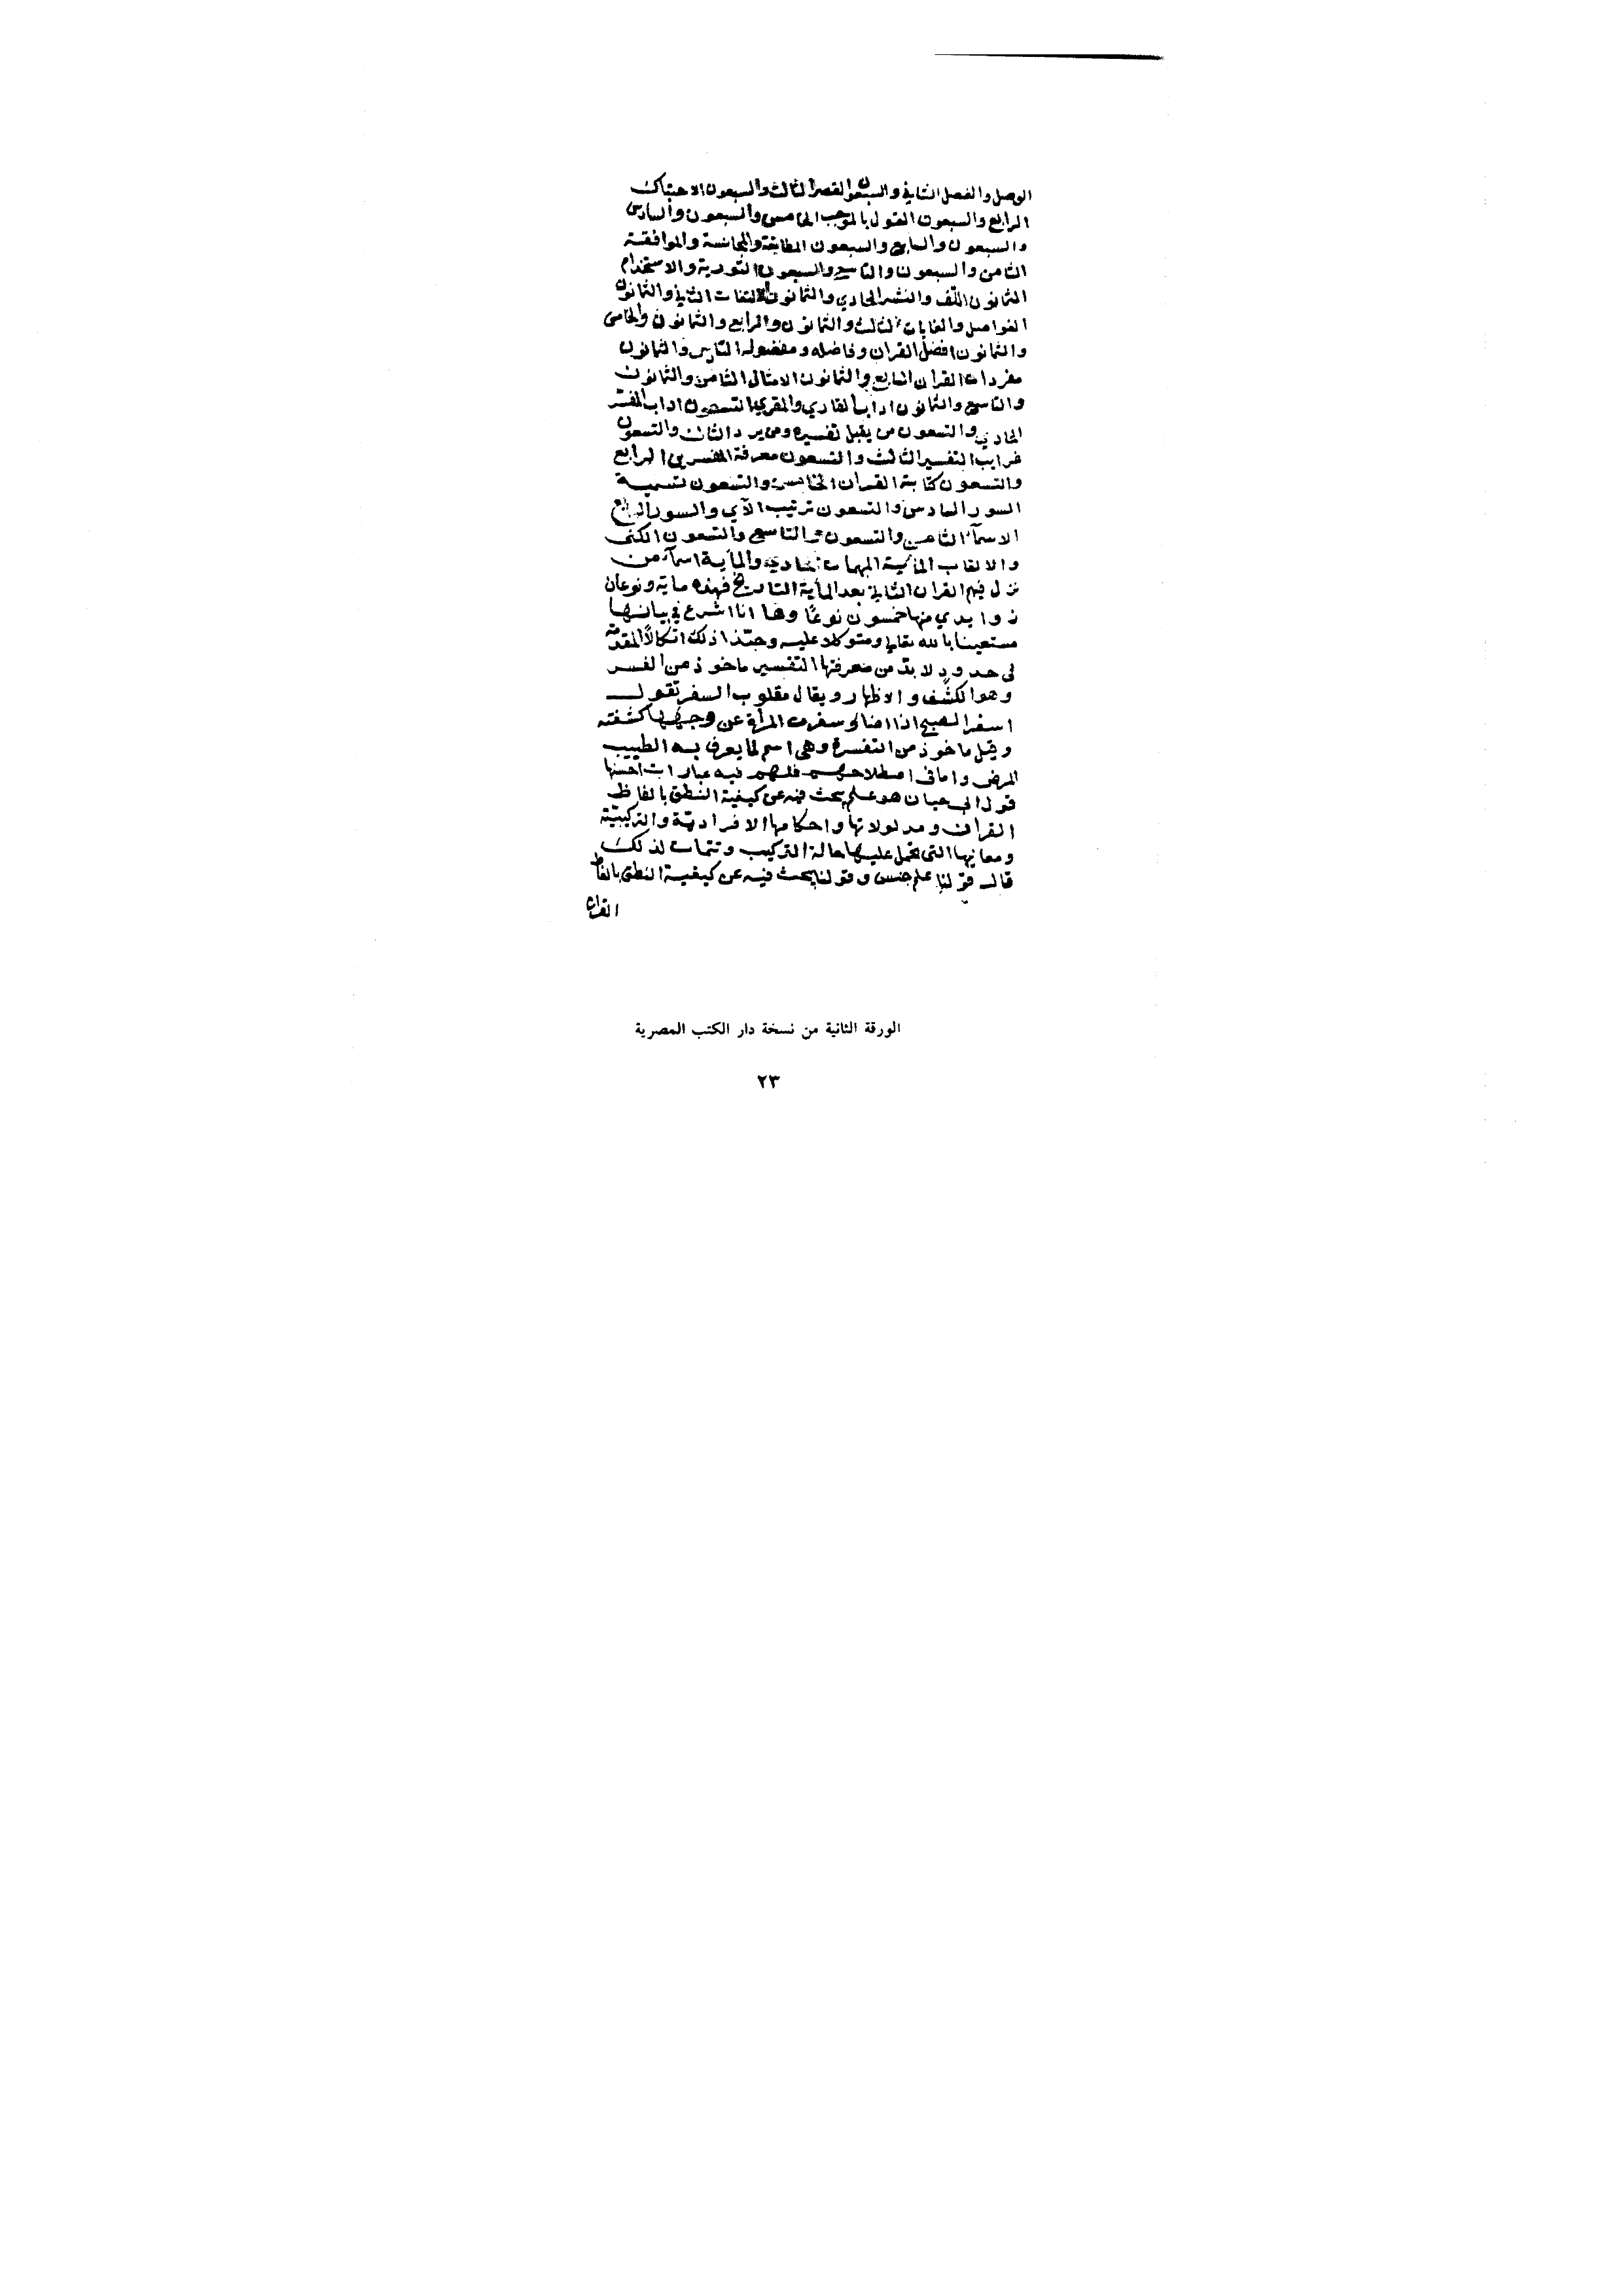 الوصل والفصل الثاني والسبعون القصر الثالث والسبعون الاحتباك
الرابع والسبعون القول بالموجب الخامس والسبعون والسادس
والسبعون والسابع والسبعون المطابقة والمجانسة والموافقة
الثامن والسبعون والتاسع والسبعون التورية والاستخدام
الثمانون اللف والنشر الحادي والثمانون الالتفات الثاني والثمانون
الفواصل والغايات الثالث والثمانون والرابع والثمانون والخامس
والثمانون افضل القران وفاضله ومفضوله السادس والثمانون
مفردات القران السابع والثمانون الامثال الثامن والثمانون
والتاسع والثمانون اداب القاري والمقري التسعون اداب المفسر
الحادي والتسعون من يقبل تفسيره ومن يرد الثاني والتسعون
غرايب التفسير الثالث والتسعون معرفة المفسرين الرابع
والتسعون كتابة القران الخامس والتسعون تسمية
السور السادس والتسعون ترتيب الآي والسور السابع
الاسمآء الثامن والتسعون والتاسع والتسعون الكنى
والالقاب الماية المبهمات الحادي والماية اسمآء من
نزل فيهم القران الثاني بعد الماية التاريخ فهذه ماية ونوعان
زوايدي منها خمسون نوعًا وها انا اشرع في بيانها
مستعينا بالله تعالى ومتوكلا عليه وحبّذا ذلك اتكالًا المقدمة
في حدود لا بدّ من معرفتها التفسير ماخوذ من الفسر
وهو الكشف والاظهار ويقال مقلوب السفر تقول
اسفر الصبح اذا اضا وسفرت المرأة عن وجهها كشفته
وقيل ماخوذ من التفسرة وهي اسم لما يعرف به الطبيب
المرض واما في اصطلاحهم فلهم فيه عبارات احسنها
قول ابي حيان هو علم يبحث فيه عن كيفية النطق بالفاظ
القران ومدلولاتها واحكامها الافرادية والتركيبيّة
ومعانيها التي يحمل عليها حالة التركيب وتتمات لذلك
قال فقولنا علم جنس وقولنا يبحث فيه عن كيفية النطق بالفاظ
القران
الورقة الثانية من نسخة دار الكتب المصرية
٢٣